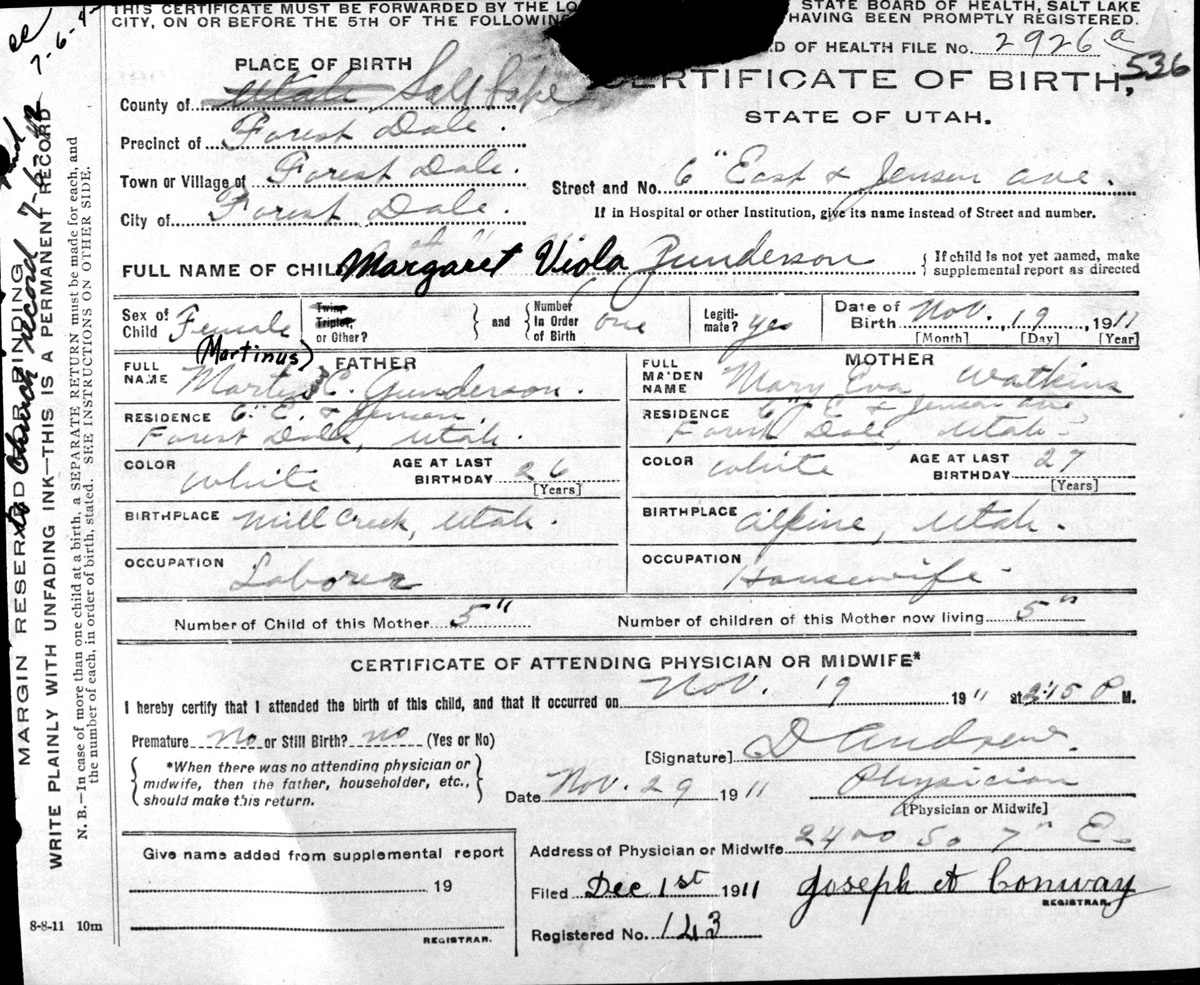 THIS CERTIFICATE MUST BE FORWARDED BY THE STATE BOARD OF HEALTH, SALT LAKE
CITY, ON OR BEFORE THE 5TH OF THE FOLLOWING HAVING BEEN PROMPTLY REGISTERED.
OF HEALTH FILE No. 2926a
536
PLACE OF BIRTH
CERTIFICATE OF BIRTH,
STATE OF UTAH.
County of Utah Salt Lake
Precinct of Forest Dale.
Town or Village of Forest Dale.
Street and No. 6" East & Jensen Ave.
City of Forest Dale.
If in Hospital or other Institution, give its name instead of Street and number.
FULL NAME OF CHILD Margaret Viola Gunderson { If child is not yet named, make
supplemental report as directed
Sex of Child Female
Twin, Triplet, or Other? } and { Number In Order of Birth one
Legiti-mate? yes
Date of Birth Nov. 19, 1911
[Month] [Day] [Year]
(Martinus)
FATHER
FULL NAME Martin C. Gunderson.
RESIDENCE 6" E. & Jensen.
Forest Dale, Utah.
COLOR White AGE AT LAST BIRTHDAY 26
[Years]
BIRTHPLACE Mill Creek, Utah.
OCCUPATION Laborer
MOTHER
FULL MA'DEN NAME Mary Eva Watkins
RESIDENCE 6" E & Jensen Ave,
Forest Dale, Utah-
COLOR White AGE AT LAST BIRTHDAY 27
[Years]
BIRTHPLACE Alpine, Utah.
OCCUPATION Housewife-
Number of Child of this Mother 5"
Number of children of this Mother now living 5"
CERTIFICATE OF ATTENDING PHYSICIAN OR MIDWIFE*
I hereby certify that I attended the birth of this child, and that it occurred on Nov. 19 1911 at 2:15 P M.
Premature no or Still Birth? no (Yes or No)
[Signature] D Andrew.
{ *When there was no attending physician or
midwife, then the father, householder, etc.,
should make this return. }
Date Nov. 29 1911 Physician
[Physician or Midwife]
Address of Physician or Midwife 2400 So 7" E-
Give name added from supplemental report
19
REGISTRAR.
Filed Dec 1st 1911 Joseph A Conway
REGISTRAR.
Registered No. 143
8-8-11 10m
MARGIN RESERVED FOR BINDING
WRITE PLAINLY WITH UNFADING INK—THIS IS A PERMANENT RECORD
N. B.—In case of more than one child at a birth, a SEPARATE RETURN must be made for each, and
the number of each, in order of birth, stated. SEE INSTRUCTIONS ON OTHER SIDE.
Church record